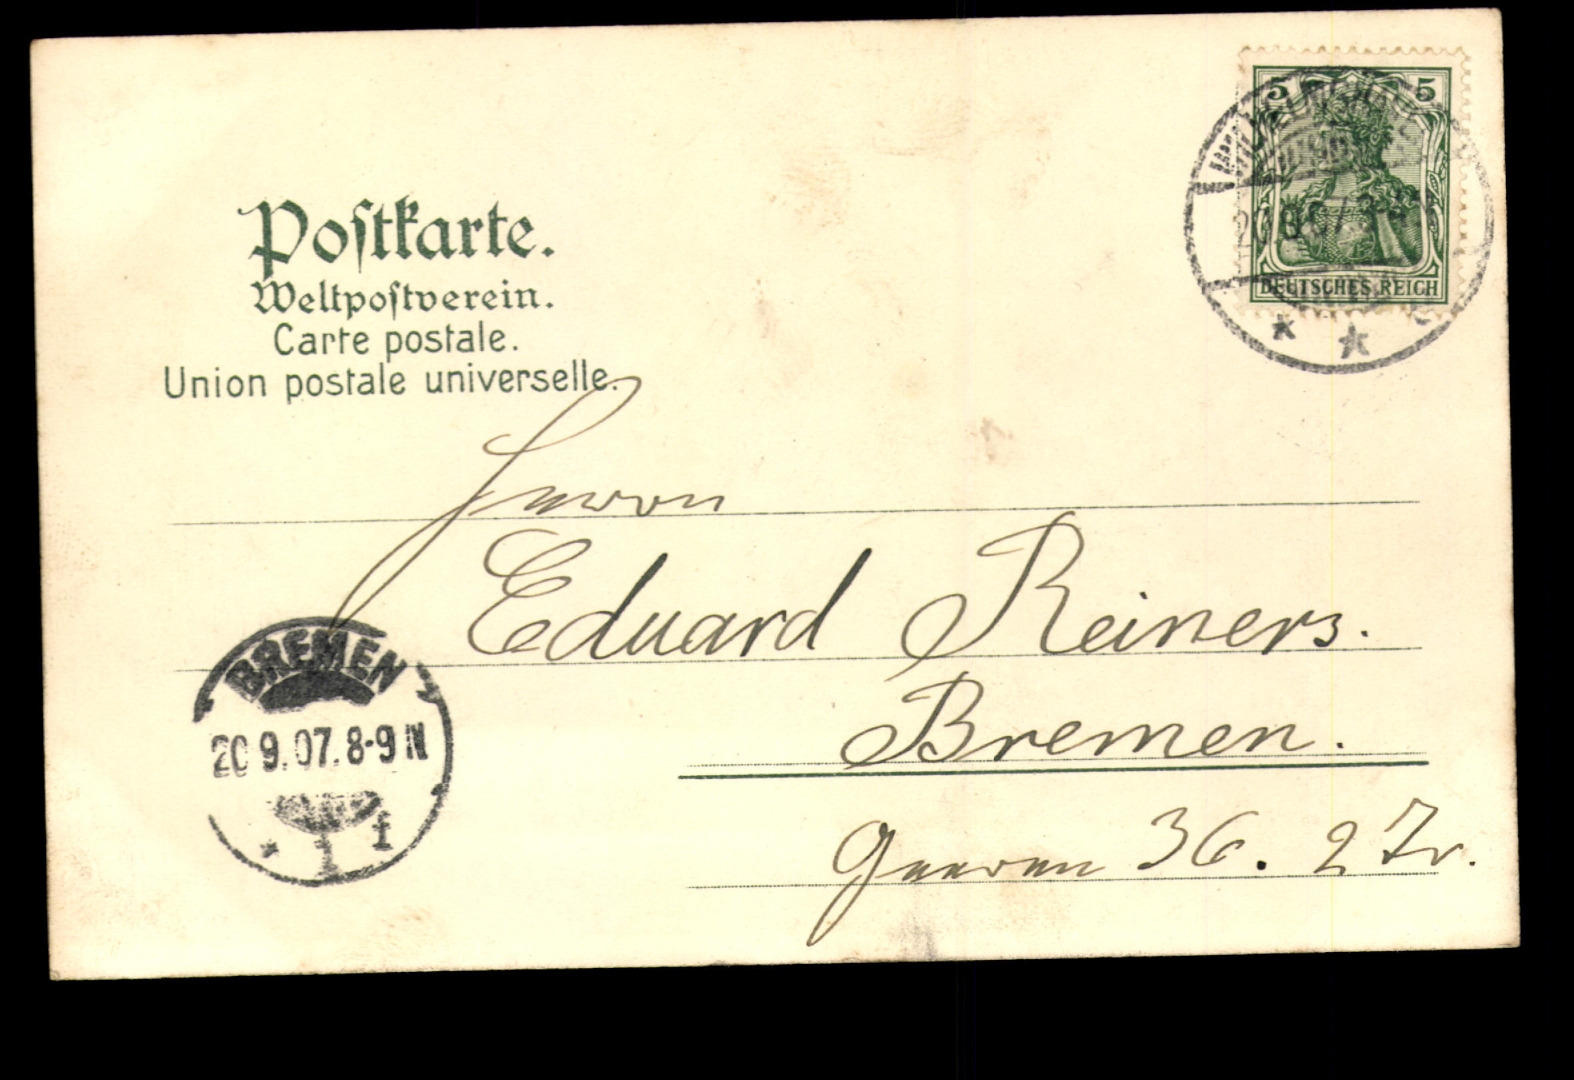 5 5
DEUTSCHES REICH
20.9.07
* *
Postkarte.
Weltpostverein.
Carte postale.
Union postale universelle.
Herrn
Eduard Reiners.
Bremen.
36. 2 Tr.
BREMEN
20 9.07. 8-9 N
* 1 f